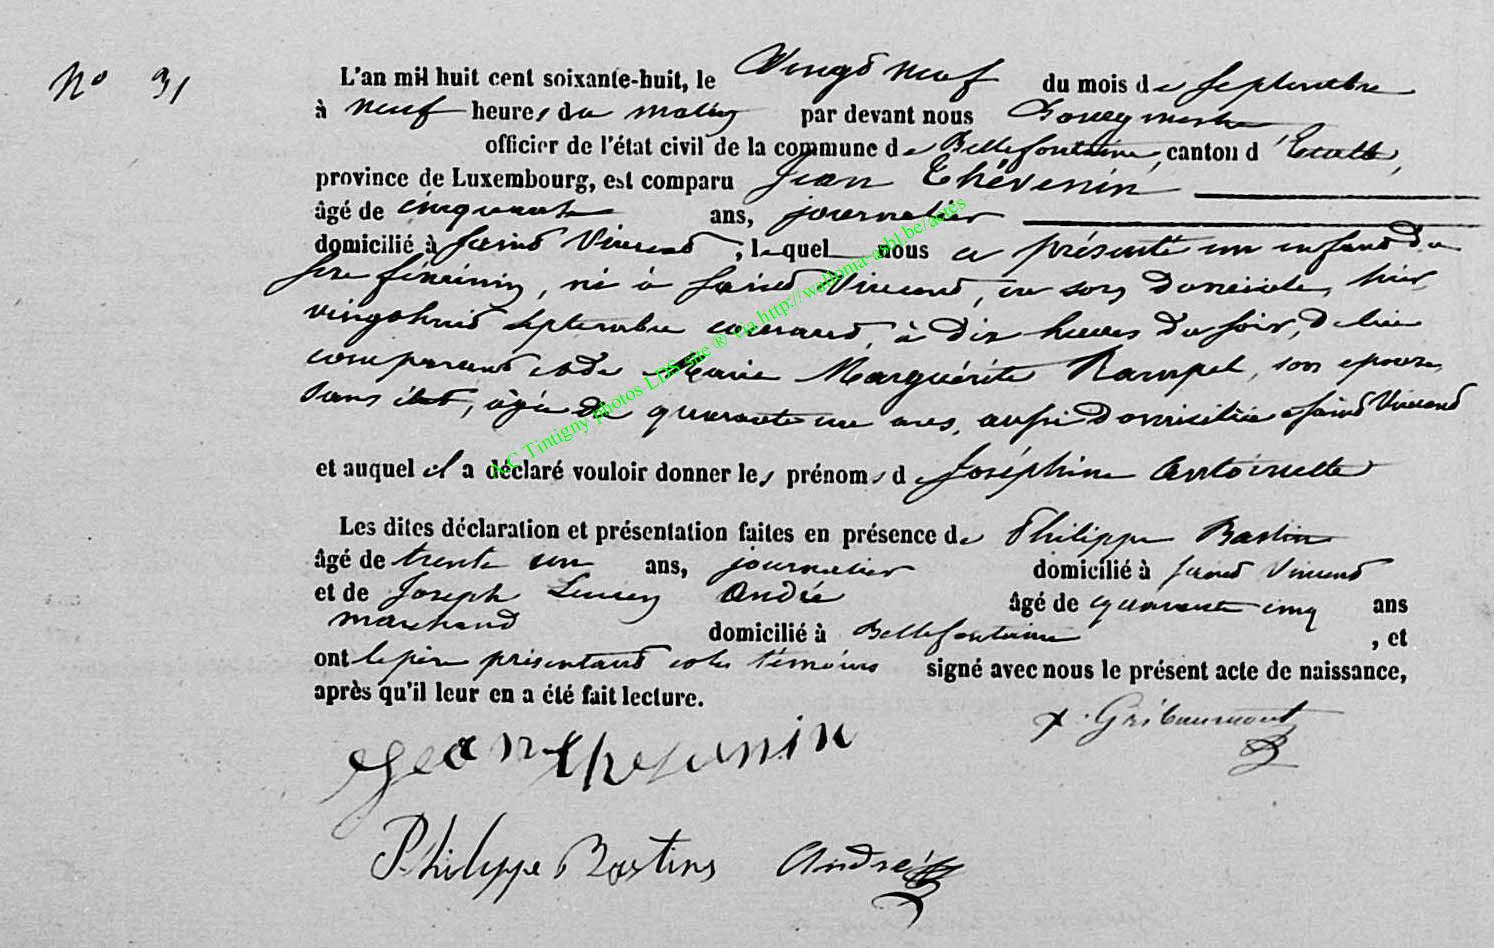 N° 31
L'an mil huit cent soixante-huit, le Vingt neuf du mois de Septembre
à neuf heures du matin par devant nous Bourgmestre
officier de l'état civil de la commune de Bellefontaine, canton d'Etalle,
province de Luxembourg, est comparu Jean Thévenin
âgé de cinquante ans, journalier
domicilié à Saint Vincent, lequel nous a présenté un enfant du
sexe féminin, né à Saint Vincent, en son domicile, hier,
vingt huit septembre courant, à dix heures du soir, de lui
comparant et de Marie Marguérite Rampel, son épouse,
sans état, âgée de quarante un ans, aussi domiciliée à Saint Vincent
et auquel il a déclaré vouloir donner les prénoms de Joséphine Antoinette
Les dites déclaration et présentation faites en présence de Philippe Bastin
âgé de trente un ans, journalier domicilié à Saint Vincent
et de Joseph Lucien André âgé de quarante cinq ans
marchand domicilié à Bellefontaine, et
ont le père présentant et les témoins signé avec nous le présent acte de naissance,
après qu'il leur en a été fait lecture.
Gribaumont
Jean thevenin
Philippe Bastin André
AC Tintigny photos LDS site ® via http://wallonia-asbl.be/actes